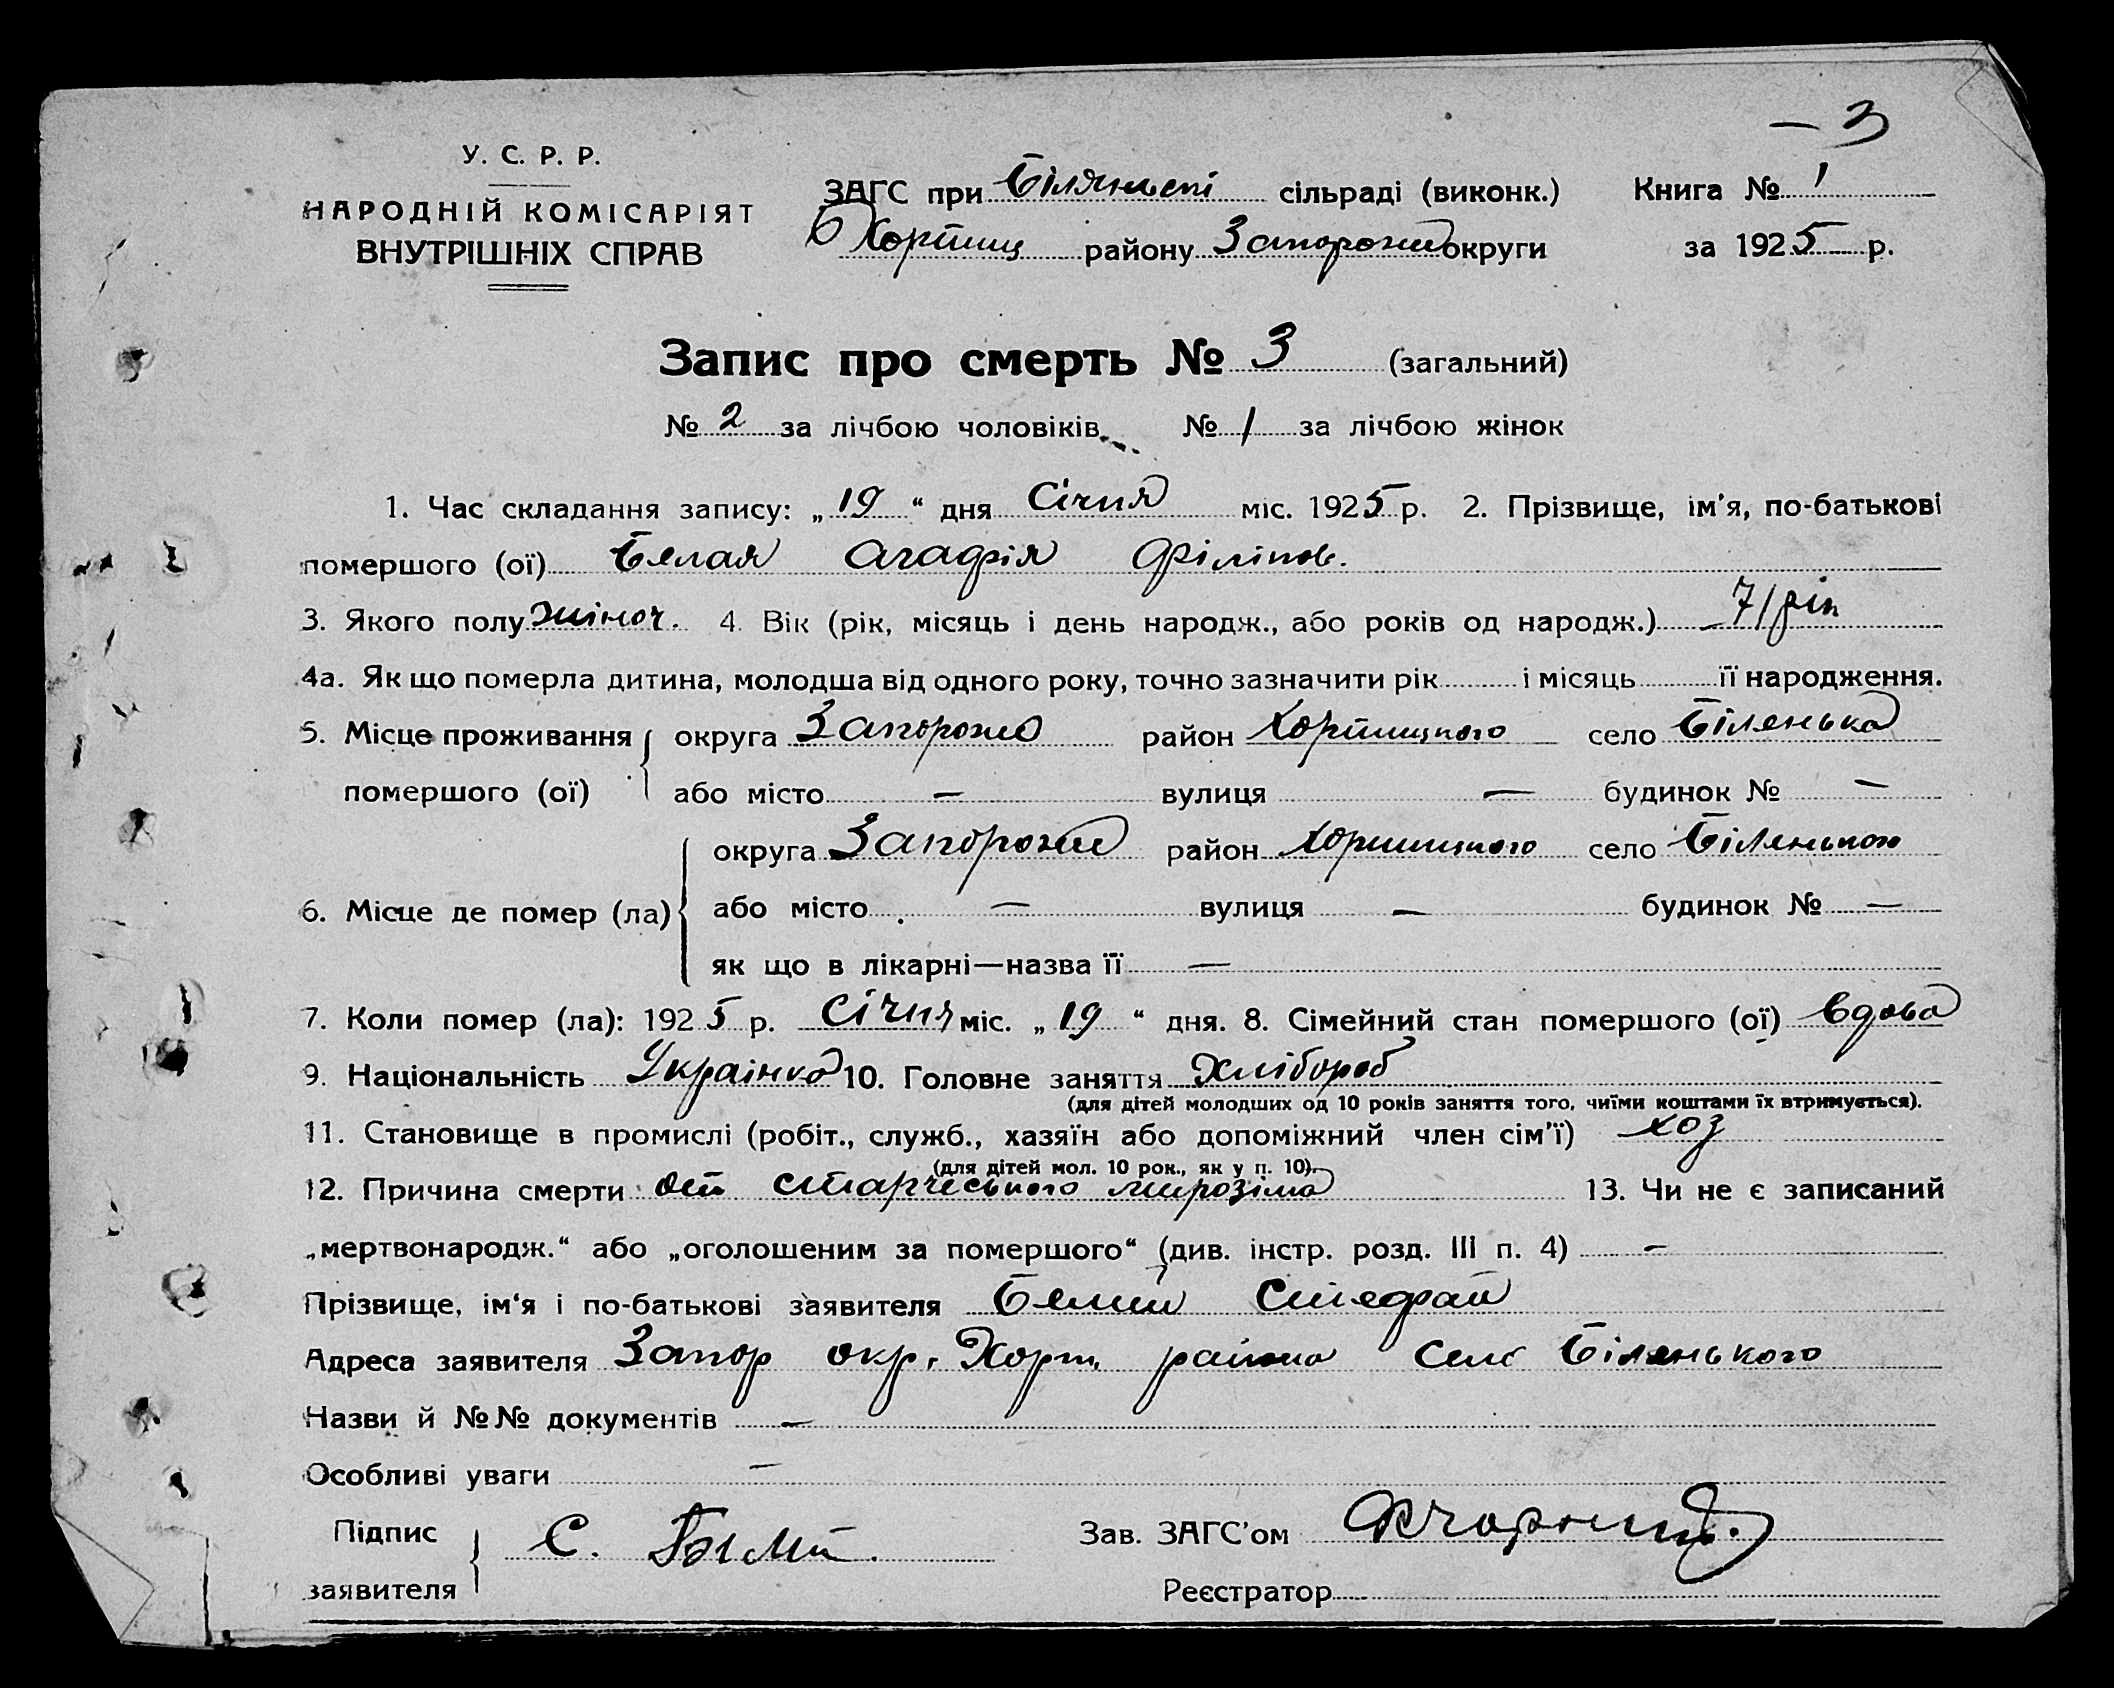 — 3
У. С. Р. Р.
НАРОДНІЙ КОМІСАРІЯТ
ВНУТРІШНІХ СПРАВ
ЗАГС при Біляньскі сільраді (виконк.) Книга № 1
Хортиц району Запорожск округи за 1925 р.
Запис про смерть № 3 (загальний)
№ 2 за лічбою чоловіків № 1 за лічбою жінок
1. Час складання запису: „19“ дня Січня міс. 1925 р. 2. Прізвище, ім'я, по-батькові
помершого (ої) Белая Агафія Філіпов.
3. Якого полу жіноч. 4. Вік (рік, місяць і день народж., або років од народж.) 71 рік
4а. Як що померла дитина, молодша від одного року, точно зазначити рік і місяць її народження.
5. Місце проживання округа Запорожс район Хортицкого село Біленька
помершого (ої) або місто — вулиця — будинок № —
округа Запорожс район Хортицкого село Біленького
6. Місце де помер (ла) або місто — вулиця — будинок № —
як що в лікарні—назва її —
7. Коли помер (ла): 1925 р. Січня міс. „19“ дня. 8. Сімейний стан помершого (ої) вдова
9. Національність Українка 10. Головне заняття Хлібороб
(для дітей молодших од 10 років заняття того, чиїми коштами їх втримується).
11. Становище в промислі (робіт., служб., хазяїн або допоміжний член сім'ї) хоз
(для дітей мол. 10 рок., як у п. 10).
12. Причина смерти от старческього 13. Чи не є записаний
„мертвонародж.“ або „оголошеним за помершого“ (див. інстр. розд. III п. 4) —
Прізвище, ім'я і по-батькові заявителя Белий Стефан
Адреса заявителя Запор окр. Хорт. района село Біленького
Назви й №№ документів —
Особливі уваги —
Підпис С. Белий Зав. ЗАГС'ом
заявителя Реєстратор